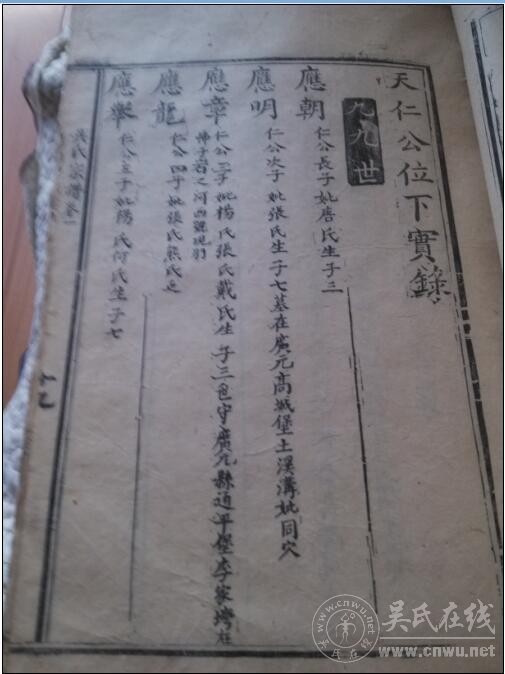 天仁公位下實錄
九九世
應朝 仁公長子妣唐氏生子三
應明 仁公次子妣張氏生子七墓在廣元高城堡土溪溝妣同穴
應章 仁公三子妣楊氏張氏戴氏生子三 守廣元縣 平堡李家
應龍 仁公四子妣張氏熊氏
應舉 仁公五子妣楊氏何氏生子七
吳氏宗譜卷一
十九
吳氏在线
www.cnwu.net